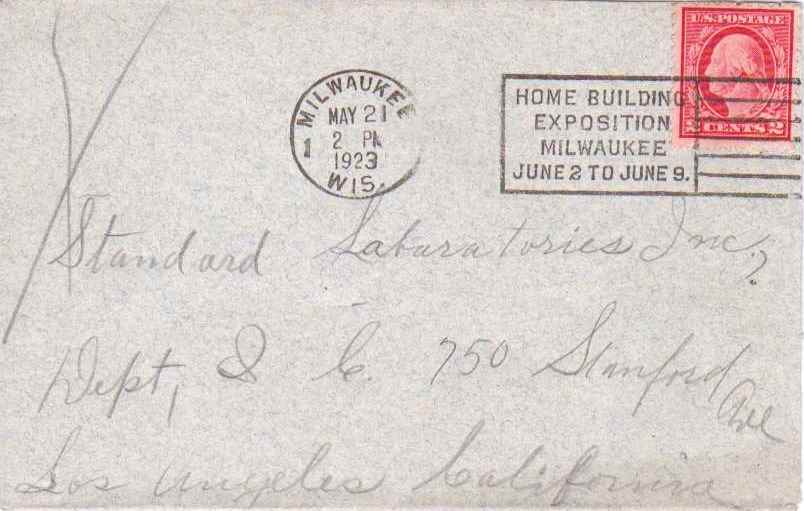 U.S. POSTAGE
2 CENTS 2
MILWAUKEE
MAY 21
1 2 PM
1923
WIS.
HOME BUILDING
EXPOSITION
MILWAUKEE
JUNE 2 TO JUNE 9.
Standard Labaratories Inc,
Dept, C. 750 Stanford Ave
Los Angeles California